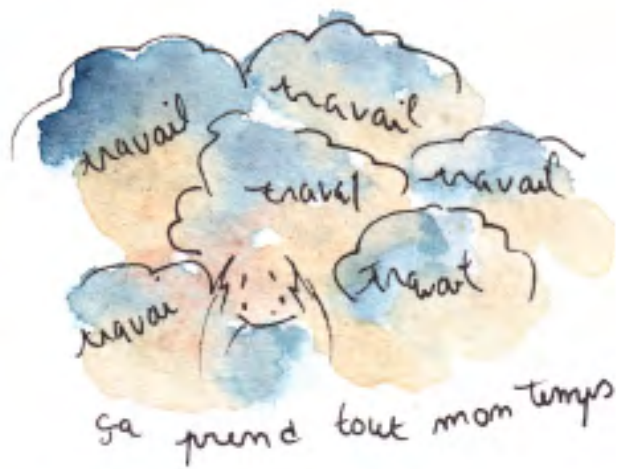 travail
travail
travail
travail
travail
travai
ça prend tout mon temps